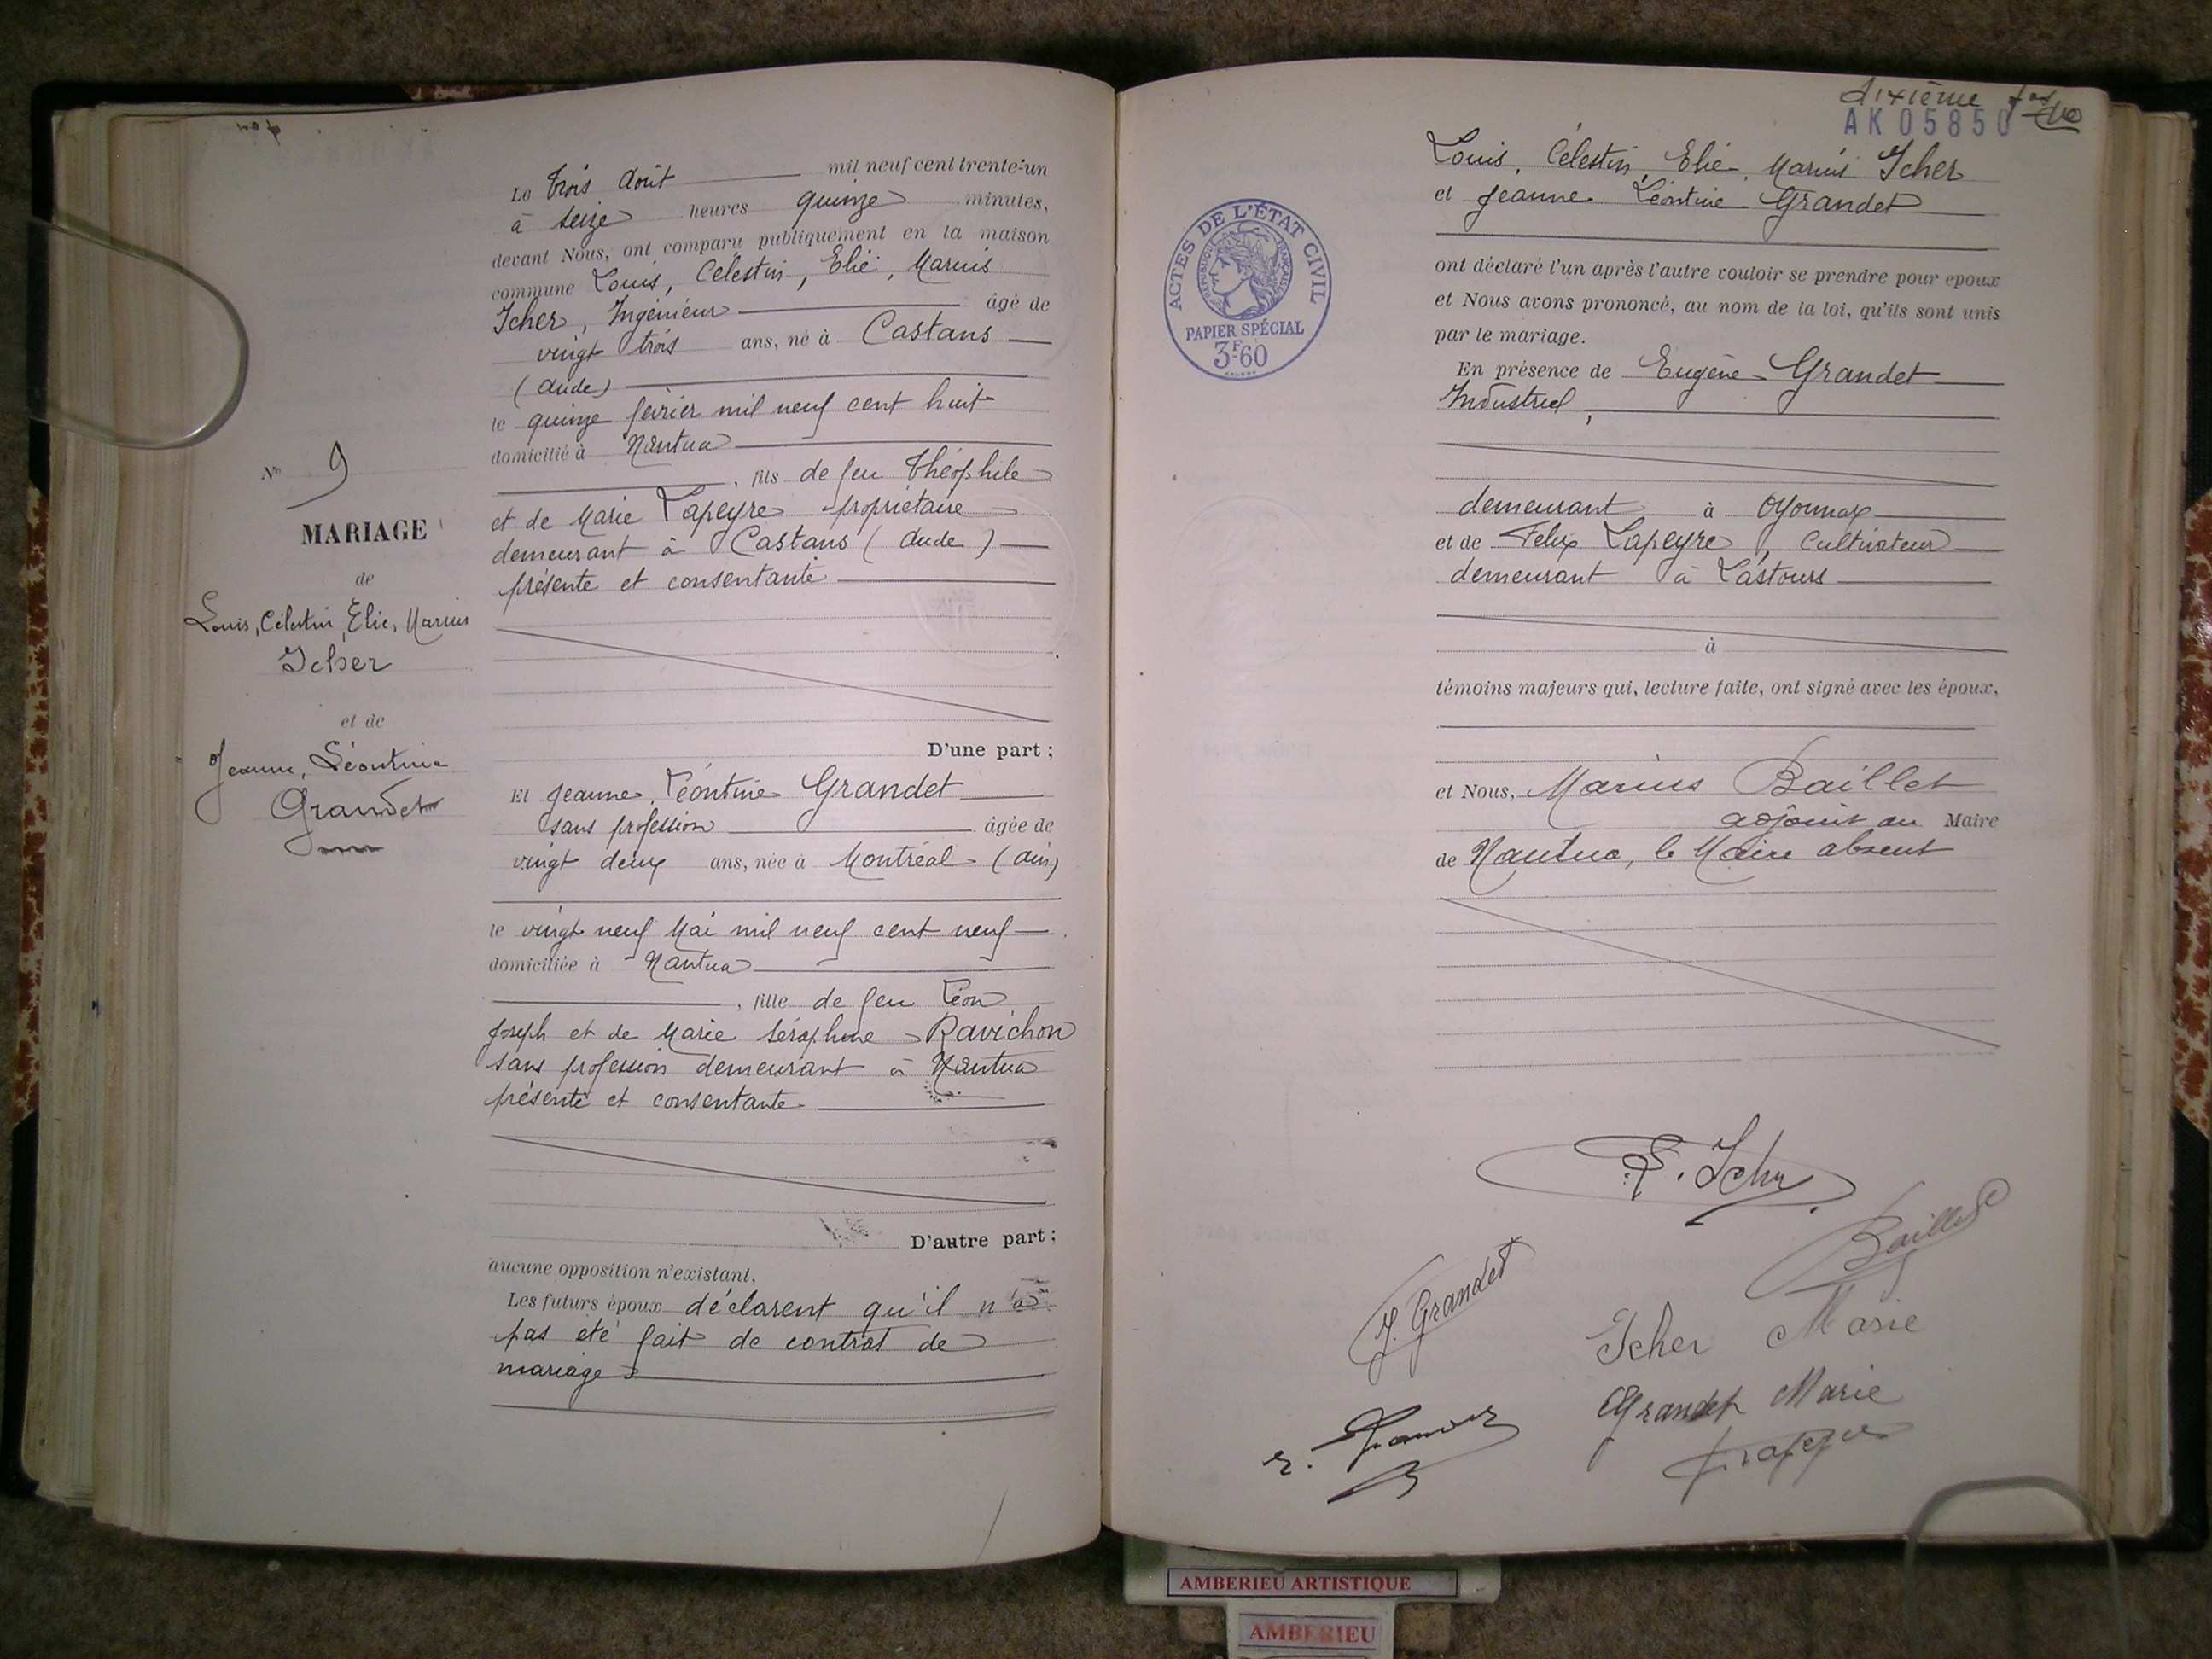 N° 9
MARIAGE
de
Louis, Célestin, Elie, Marius
Icher
et de
Jeanne, Léontine
Grandet
Le trois Août mil neuf cent trente-un
à seize heures quinze minutes,
devant Nous, ont comparu publiquement en la maison
commune Louis, Célestin, Elie, Marius
Icher, Ingénieur âgé de
vingt trois ans, né à Castans
(Aude)
le quinze février mil neuf cent huit
domicilié à Nantua
, fils de feu Théophile
et de Marie Lapeyre propriétaire
demeurant à Castans (Aude)
présente et consentante
D'une part ;
Et Jeanne, Léontine Grandet
sans profession âgée de
vingt deux ans, née à Montréal (Ain)
le vingt neuf Mai mil neuf cent neuf
domiciliée à Nantua
, fille de feu Léon
Joseph et de Marie Séraphine Ravichon
sans profession demeurant à Nantua
présente et consentante
D'autre part ;
aucune opposition n'existant,
Les futurs époux déclarent qu'il n'a
pas été fait de contrat de
mariage
dixième
AK 05850
Louis, Célestin, Elie, Marius Icher
et Jeanne Léontine Grandet
ont déclaré l'un après l'autre vouloir se prendre pour époux
et Nous avons prononcé, au nom de la loi, qu'ils sont unis
par le mariage.
En présence de Eugène Grandet
Industriel,
demeurant à Oyonnax
et de Felix Lapeyre, Cultivateur
demeurant à Lastours
à
témoins majeurs qui, lecture faite, ont signé avec les époux,
et Nous, Marius Baillet
adjoint au Maire
de Nantua, le Maire absent
ACTES DE L'ÉTAT CIVIL
RÉPUBLIQUE FRANÇAISE
PAPIER SPÉCIAL
3F.60
Icher
Baillet
J. Grandet
Icher Marie
Grandet Marie
AMBERIEU ARTISTIQUE
AMBERIEU